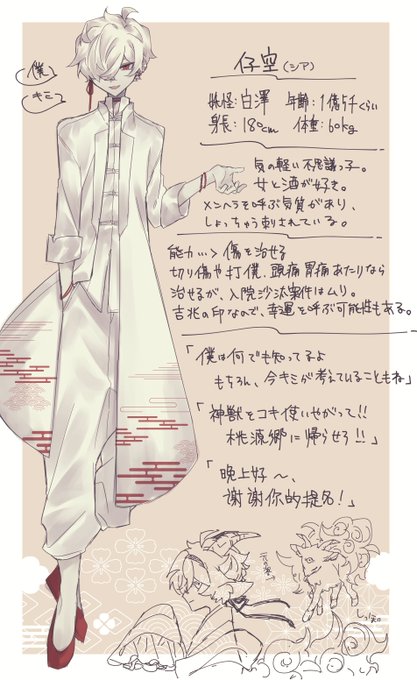 僕
キミ
仔空(シア)
妖怪:白澤 年齢:1億5千くらい
身長:180cm 体重:60kg
気の軽い不思議っ子。
女と酒が好き。
メンヘラを呼ぶ気質があり、
しょっちゅう刺されている。
能力…>傷を治せる
切り傷や打僕、頭痛胃痛あたりなら
治せるが、入院沙汰案件はムリ。
吉兆の印なので、幸運を呼ぶ可能性もある。
「僕は何でも知ってるよ
もちろん、今キミが考えていることもね」
「神獣をコキ使いやがって!!
桃源郷に帰らせろ!!」
「晩上好～、
谢谢你的提名!」